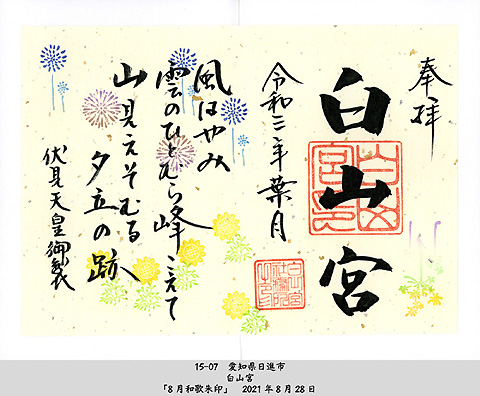 奉拝
白山宮
令和三年葉月
風はやみ
雲のひとむら峰こえて
山見えそむる
夕立の跡
伏見天皇御製
15-07　愛知県日進市
白山宮
「8月和歌朱印」　2021年8月28日